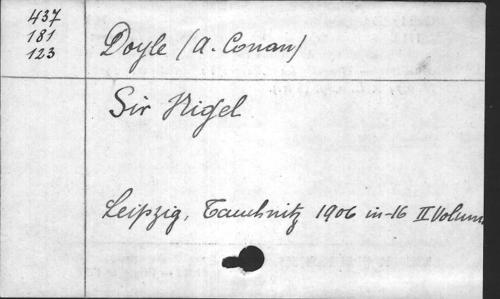 437
181
123
Doyle (A. Conan)
Sir Nigel
Leipzig, Tauchnitz 1906 in-16 II Volum